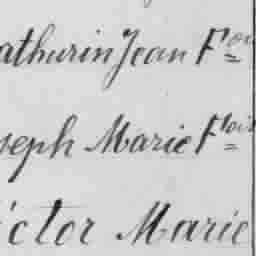 athurin Jean Fois
seph Marie Flois
ictor Marie